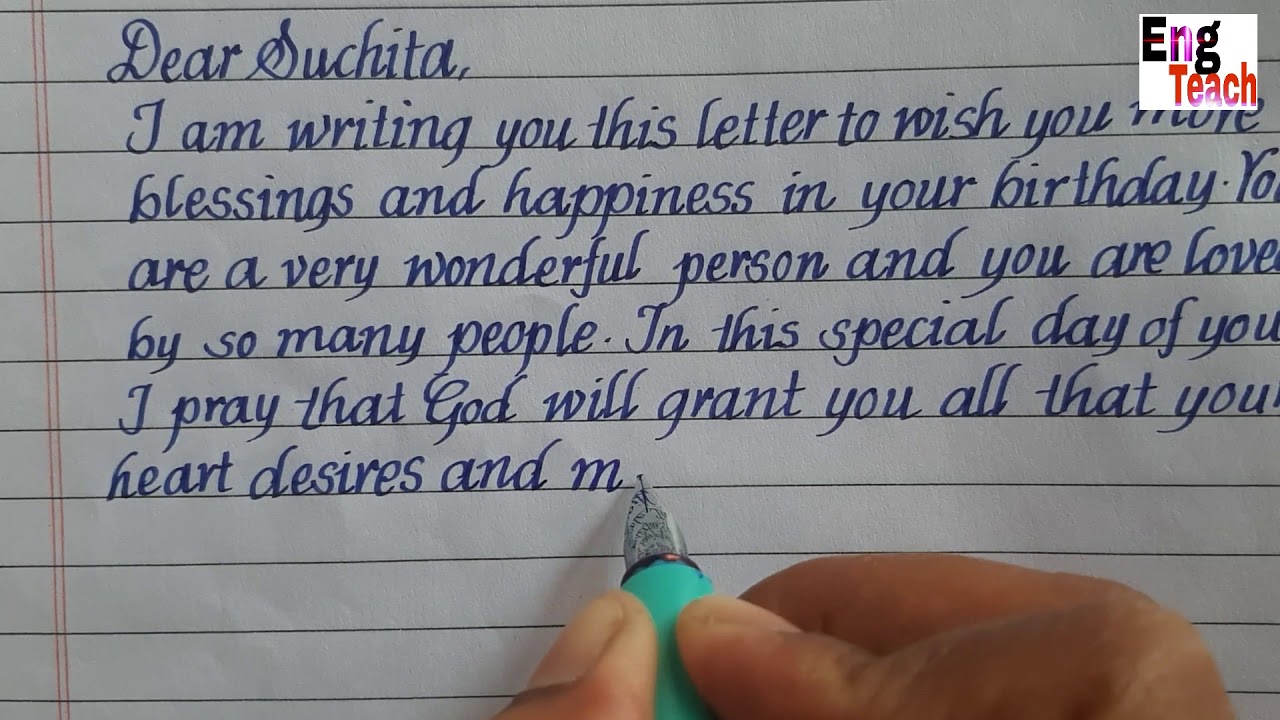 Dear Suchita,
I am writing you this letter to wish you more
blessings and happiness in your birthday. Yo
are a very wonderful person and you are love
by so many people. In this special day of you
I pray that God will grant you all that you
heart desires and m
Eng
Teach